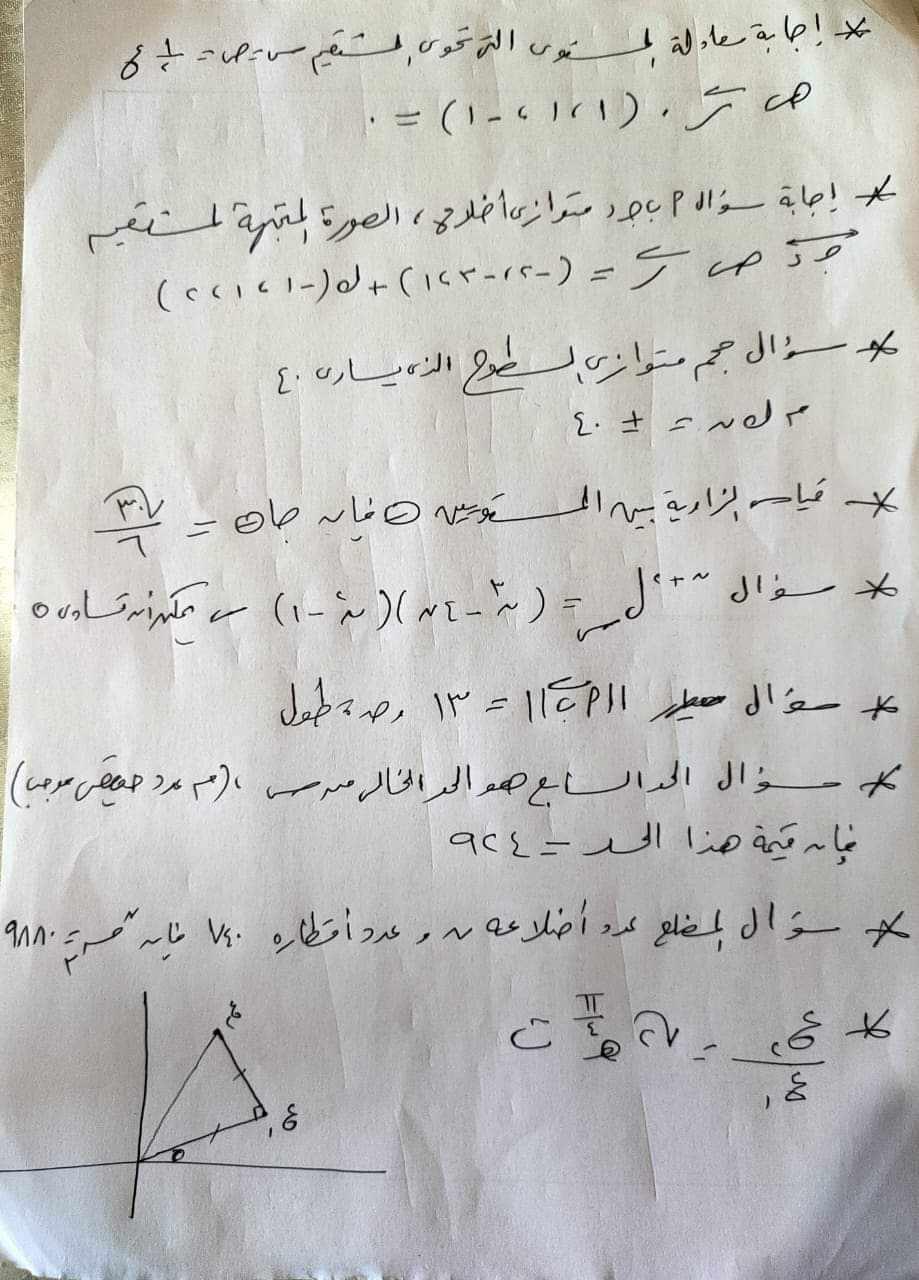 * إجابة معادلة المستوى التى تحوى المستقيم س = ص = ½ ع
ص ر⃗ . (١ ، ١ ، -١) = ٠
* إجابة سؤال ٩ ب ج د متوازى أضلاع ، الصورة المتجهة لمستقيم
ج د ص ر⃗ = (-٢ ، -٣ ، ١) + ك (-١ ، ١ ، ٢)
* سؤال حجم متوازى السطوح الذى يساوى ٤٠
م ك ن = ± ٤٠
* قياس الزاوية بين المستويين θ فإن جا θ = √٣٠ / ٦
* سؤال ن+٢ل س = (ن٣ - ٤ن)(ن٢ - ١) س يمكن أن تساوى ٥
* سؤال ||٩ب⃗|| = ١٣ وحدة طول
* سؤال الحد السابع هو الحد الخالى من س ، (م عدد حقيقى موجب)
فإن قيمة هذا الحد = ٩٢٤
* سؤال المضلع عدد أضلاعه ن وعدد أقطاره ٧٤٠ فإن ن ق ٣ = ٩٨٨٠
* ع٢ / ع١ = √٢ هـ π/٤ ت
ع٢
ع١
θ